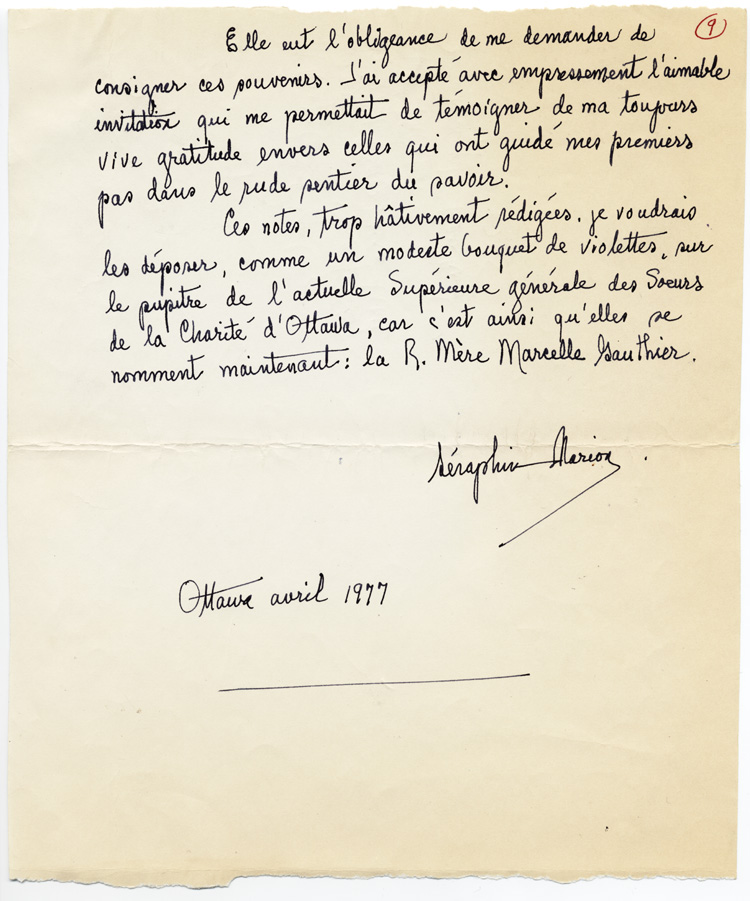 9
Elle eut l'obligeance de me demander de
consigner ces souvenirs. J'ai accepté avec empressement l'aimable
invitation qui me permettait de témoigner de ma toujours
vive gratitude envers celles qui ont guidé mes premiers
pas dans le rude sentier du savoir.
Ces notes, trop hâtivement rédigées, je voudrais
les déposer, comme un modeste bouquet de violettes, sur
le pupitre de l'actuelle Supérieure générale des Soeurs
de la Charité d'Ottawa, car c'est ainsi qu'elles se
nomment maintenant : la R. Mère Marcelle Gauthier.
Séraphin Marion.
Ottawa avril 1977